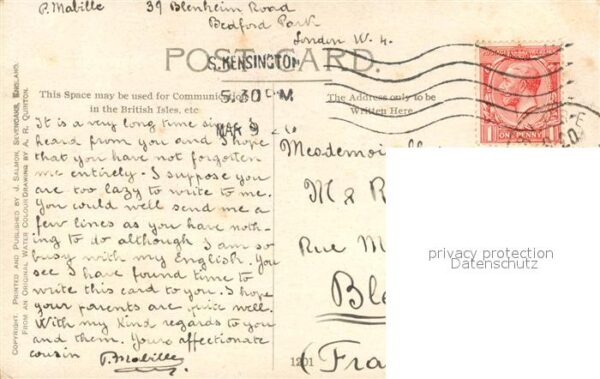 P. Mabille 39 Blenheim Road
Bedford Park
London W. 4.
POST CARD.
S. KENSINGTON
5.30 PM
MAR 9
This Space may be used for Communication
in the British Isles, etc
The Address only to be
Written Here.
ONE PENNY
It is a very long time since I
heard from you and I hope
that you have not forgotten
me entirely. I suppose you
are too lazy to write to me.
You could well send me a
few lines as you have noth-
ing to do although I am so
busy with my English. You
see I have found time to
write this card to you. I hope
your parents are quite well.
With my kind regards to you
and them. Yours affectionate
cousin P. Mabille
Mesdemoiselle
M & R
Rue M
Ble
(Fra
1201
COPYRIGHT. PRINTED AND PUBLISHED BY J. SALMON, SEVENOAKS, ENGLAND.
FROM AN ORIGINAL WATER COLOUR DRAWING BY A. R. QUINTON.
privacy protection
Datenschutz